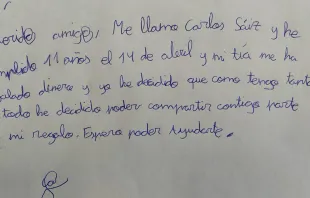 erid@ amig@, Me llamo Carlos Sáiz y he
mplido 11 años el 14 de abril y mi tía me ha
alado dinero y yo he decidido que como tengo tant
todo he decidido poder compartir contigo parte
mi regalo. Espero poder Ayudarte.